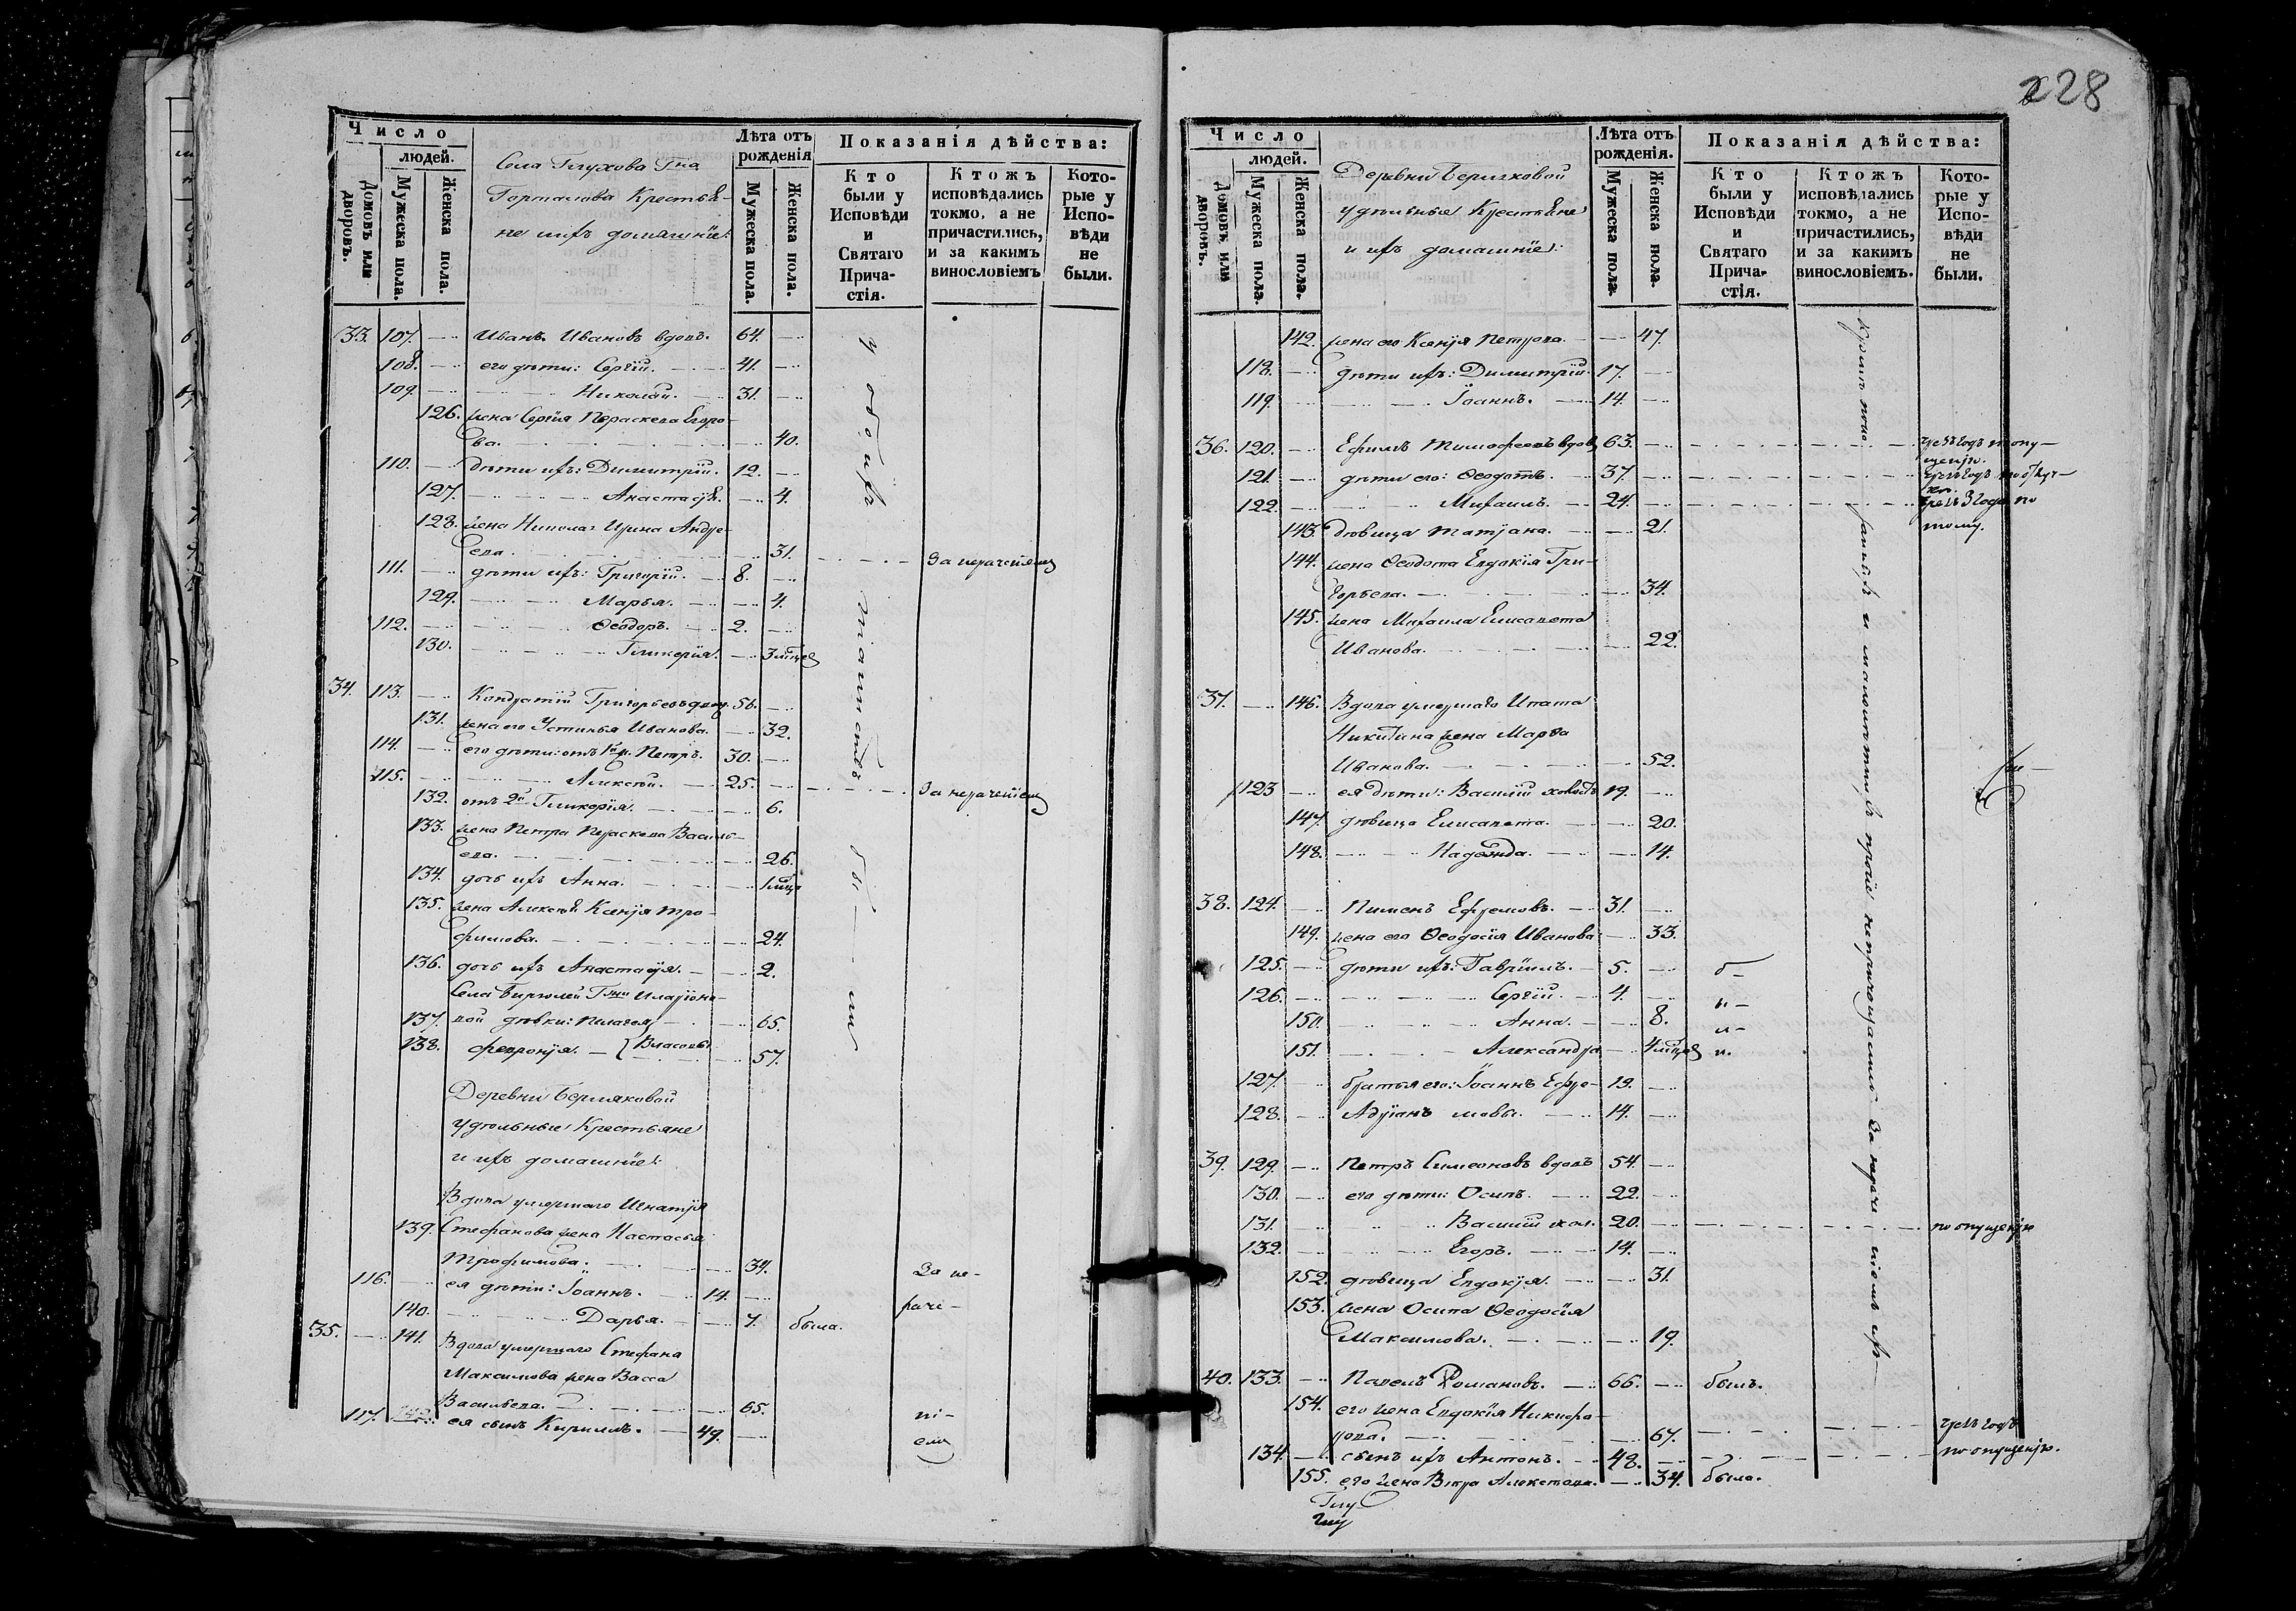 228
Число
людей.
Домовъ или дворовъ.
Мужеска пола.
Женска пола.
Села Глухова Гна
Горталова Крестья-
не ихъ домашніе:
Лѣта отъ рожденія
Мужеска пола.
Женска пола.
Показанія дѣйства:
Кто были у Исповѣди и Святаго Прича-стія.
Ктожъ исповѣдались токмо, а не причастились, и за какимъ винословіемъ
Кото-рые у Испо-вѣди не были.
33. 107. Иванъ Ивановъ вдовъ. 64.
108. его дѣти: Сергій. 41.
109. Николай. 31.
126. жена Сергія Параскева Егоро-
ва. 40.
110. дѣти ихъ: Димитрій. 12.
127. Анастасія. 4.
128. жена Николая Ирина Андре-
ева. 31. За нераченіемъ
111. дѣти ихъ: Григорій. 8.
129. Марья. 4.
112. Ѳеодоръ. 2.
130. Гликерія. 3 мѣсяц.
34. 113. Кондратій Григорьевъ 56.
131. жена его Устинья Иванова. 32.
114. его дѣти: отъ 1й. Петръ. 30.
115. Алексѣй. 25. За нераченіемъ
132. отъ 2й Гликерія. 6.
133. жена Петра Параскева Василь-
ева. 26.
134. дочь ихъ Анна. 1 мѣсяц.
135. жена Алексѣя Ксенія Тро-
фимова. 24.
136. дочь ихъ Анастасія. 2.
Села Гна Иларіоно-
137. вой дѣвки: Пелагея 65.
138. Февронія. Власовы 57.
Деревни Берляковой
удѣльные Крестьяне
и ихъ домашніе:
Вдова умершаго Игнатія
139. Стефанова жена Настасья
Трофимова. 34. За не-
116. ея дѣти: Іоаннъ. 14. раче-
140. Дарья. 7. была.
35. 141. Вдова умершаго Стефана
Максимова жена Васса
Васильева. 65. ні-
117. ея сынъ Кириллъ. 49. емъ
у обоихъ
бы-ли
Число
людей.
Домовъ или дворовъ.
Мужеска пола.
Женска пола.
Деревни Берляковой
удѣльные Крестьяне
и ихъ домашніе:
Лѣта отъ рожденія.
Мужеска пола.
Женска пола.
Показанія дѣйства:
Кто были у Исповѣди и Святаго Прича-стія.
Ктожъ исповѣдались токмо, а не причастились, и за какимъ винословіемъ.
Кото-рые у Испо-вѣди не были.
142. жена его Ксенія Петрова. 47.
118. дѣти ихъ: Димитрій. 17.
119. Іоаннъ. 14.
36. 120. Ефимъ Тимофеевъ вдовъ 63.
121. дѣти его: Ѳеодотъ. 37.
122. Михаилъ. 24.
143. дѣвица Татіана. 21.
144. жена Ѳеодота Евдокія Гри-
горьева. 34.
145. жена Михаила Елисавета
Иванова. 22.
37. 146. Вдова умершаго Ипата
Никитина жена Марѳа
Иванова. 52.
123 ея дѣти: Василій холостъ 19.
147. дѣвица Елисавета. 20.
148. Надежда. 14.
38. 124. Пименъ Ефремовъ. 31.
149. жена его Ѳеодосія Иванова 33.
125. дѣти ихъ: Гавріилъ. 5. б-
126. Сергій. 4. ы-
150. Анна. 8. л-
151. Александра 4 мѣсяц. и.
127. братья его: Іоаннъ Ефре- 19.
128. Адріанъ мовы. 14.
39. 129. Петръ Симеоновъ вдовъ 54.
130. его дѣти: Осипъ. 22.
131. Василій хол. 20. по опущенію
132. Егоръ. 14.
152. дѣвица Евдокія. 31.
153. жена Осипа Ѳеодосія
Максимова. 19.
40. 133. Павелъ Романовъ. 66. былъ.
154. его жена Евдокія Никифо-
рова. 67. чрезъ годъ
134. сынъ ихъ Антонъ. 48. по опущенію.
155. его жена Вѣра Алексѣева. 34. была.